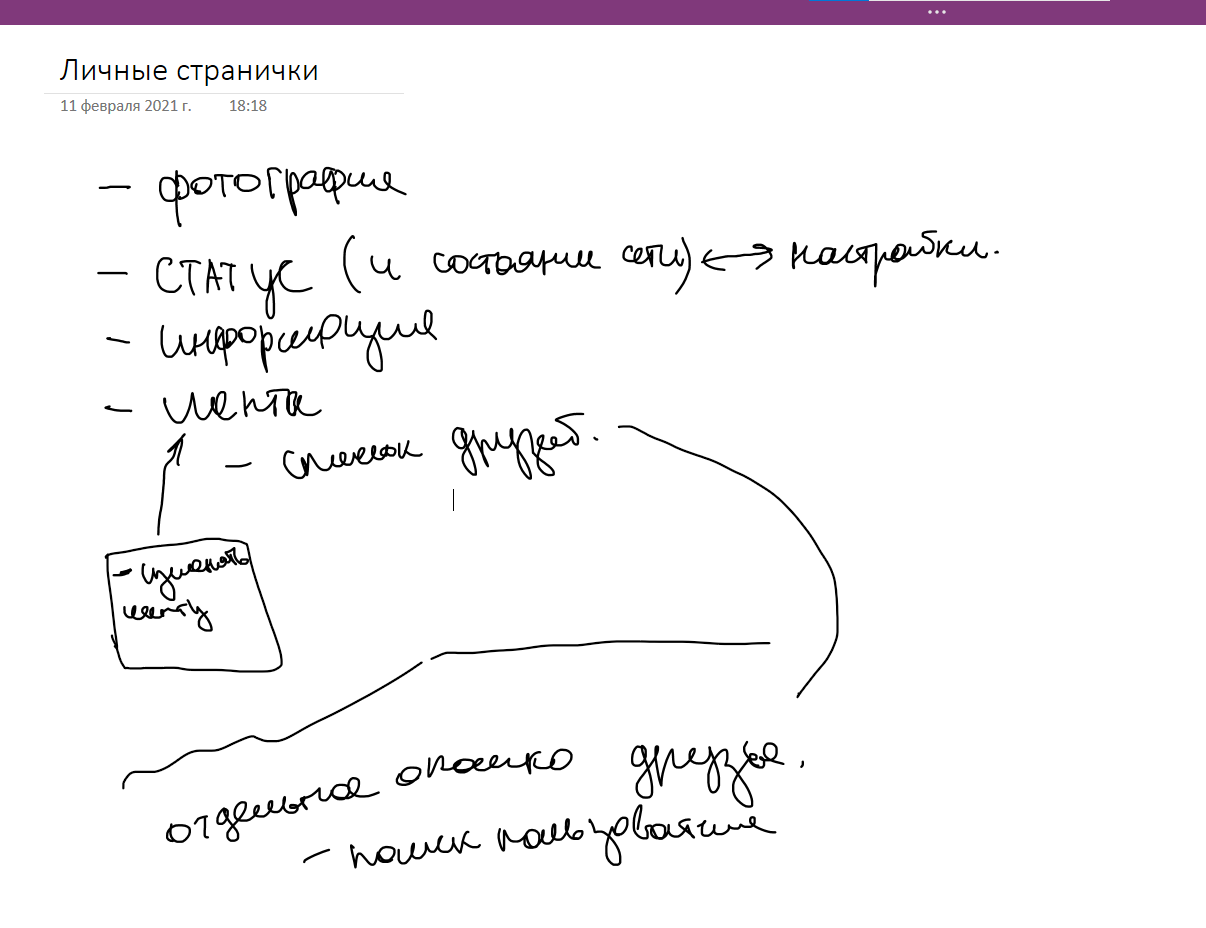 Личные странички
11 февраля 2021 г. 18:18
– фотография
– СТАТУС (и состоянии сети) ↔ настройки.
– информация
– лента
– список друзей.
– изменять
ленту
отдельное окошко друзья.
– поиск пользователя